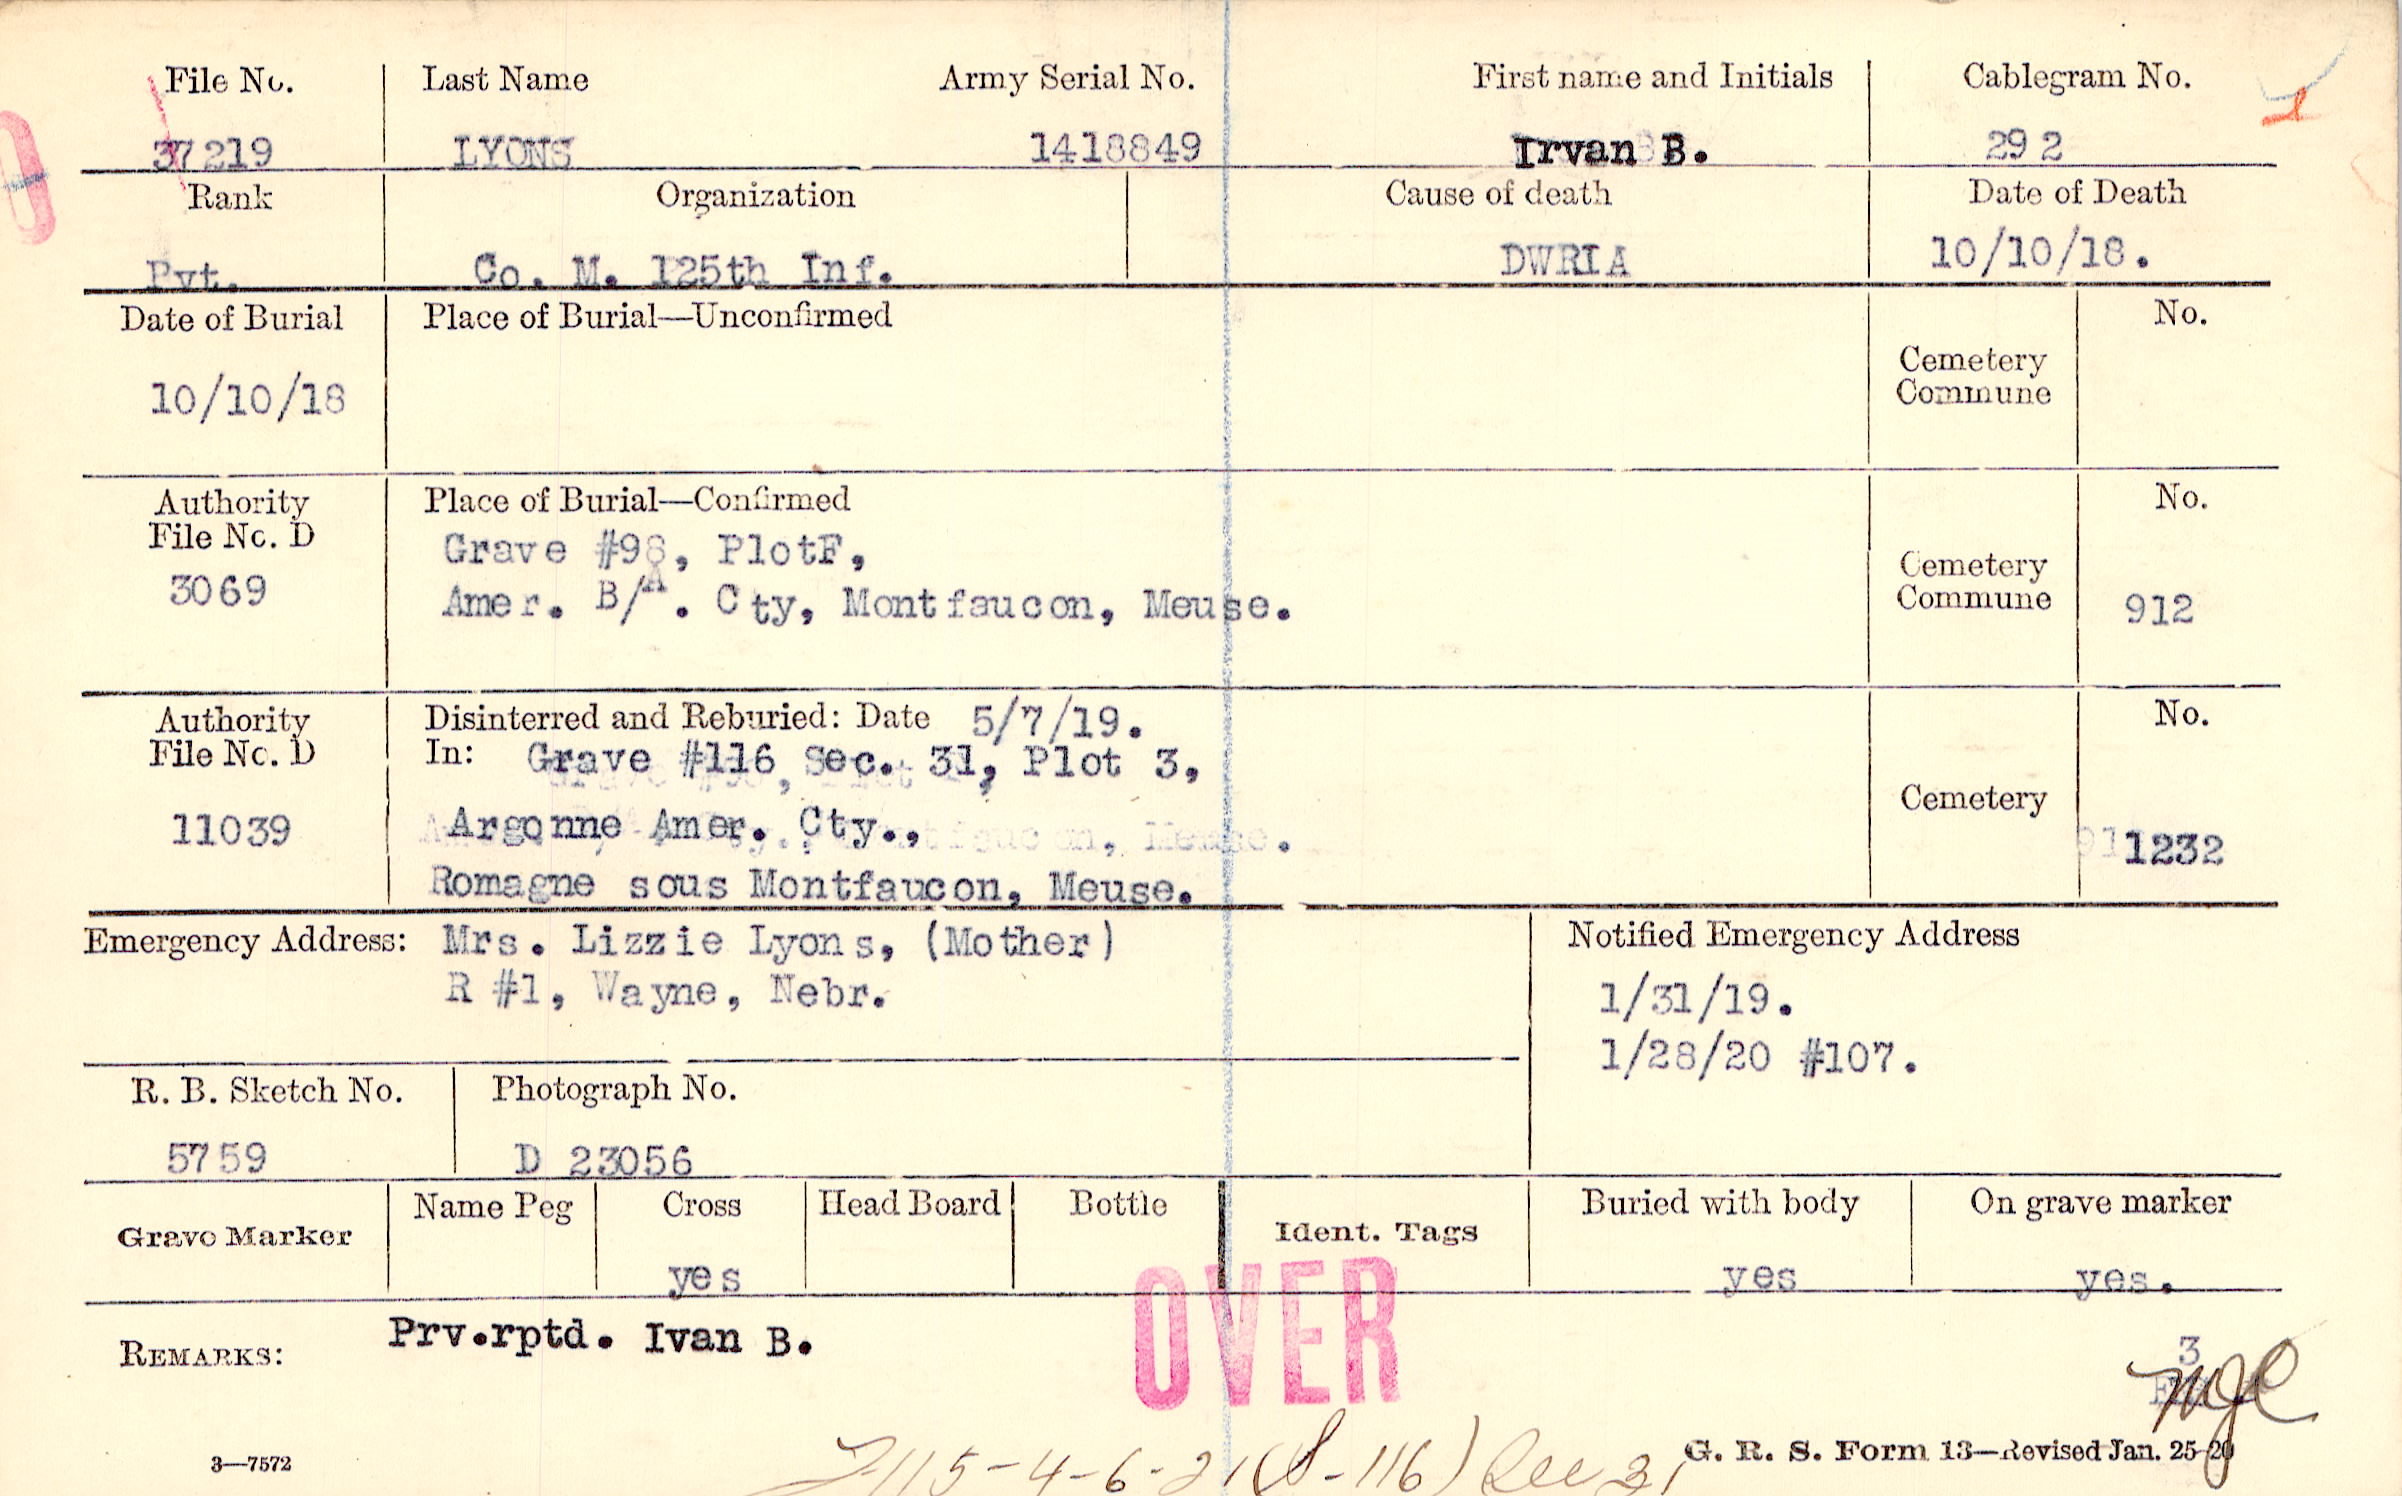 File No. Last Name Army Serial No. First name and Initials Cablegram No.
37219 LYONS 1418849 Irvan B. 292
Rank Organization Cause of death Date of Death
Pvt. Co. M. 125th Inf. DWRIA 10/10/18.
Date of Burial Place of Burial—Unconfirmed No.
Cemetery
Commune
10/10/18
Authority Place of Burial—Confirmed No.
File No. D Grave #98, PlotF,
3069 Amer. B/A. Cty, Montfaucon, Meuse. Cemetery
Commune 912
Authority Disinterred and Reburied: Date 5/7/19. No.
File No. D In: Grave #116 Sec. 31, Plot 3,
11039 Argonne Amer. Cty., Cemetery 1232
Romagne sous Montfaucon, Meuse.
Emergency Address: Mrs. Lizzie Lyons, (Mother) Notified Emergency Address
R #1, Wayne, Nebr. 1/31/19.
1/28/20 #107.
R. B. Sketch No. Photograph No.
5759 D 23056
Grave Marker Name Peg Cross Head Board Bottle Ident. Tags Buried with body On grave marker
yes yes yes.
OVER
REMARKS: Prv.rptd. Ivan B.
3
3—7572 G. R. S. Form 13—Revised Jan. 25-20
115-4-6-21 (S-116) Sec 31